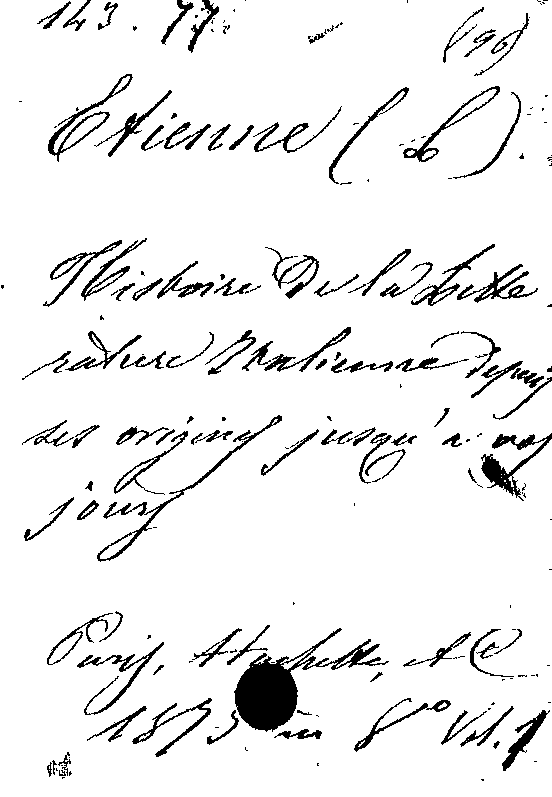 143.77. (96)
Etienne (L).
Histoire De la Litte
rature Italienne depuis
ses origines jusqu'a nos
jours
Paris, Hachette, et C
1875 in 8° Vol. 1